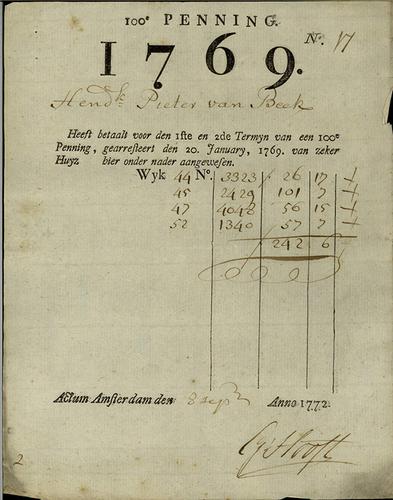 100e PENNING.
No. 17
1769.
Hendk Pieter van Beek
Heeft betaalt voor den 1ste en 2de Termyn van een 100e
Penning, gearresteert den 20. January, 1769. van zeker
Huyz hier onder nader aangewesen.
Wyk 44 No. 3323 26 17
45 2429 101 7
47 4048 56 15
52 1340 57 7
242 6
Actum Amsterdam den 8 sep Anno 1772.
Hooft
2